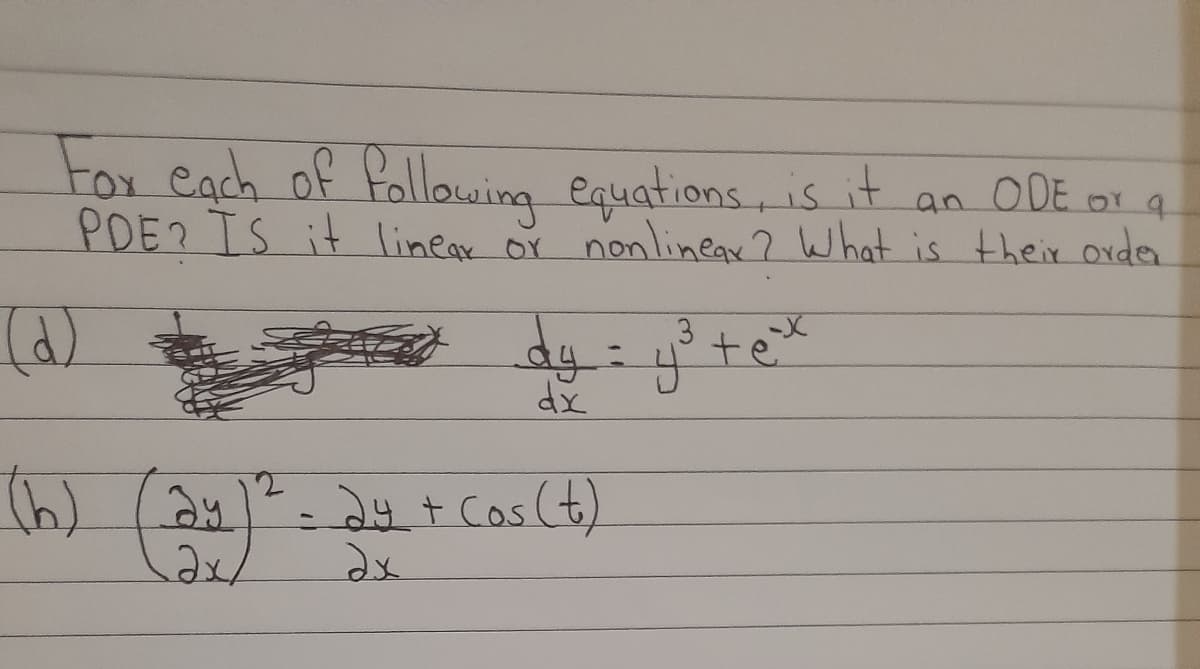 For each of following equations, is it an ODE or a
PDE? IS it linear or nonlinear? What is their order
(d) dy/dx = y³ + e^-x
(h) (∂y/∂x)² = ∂y/∂x + Cos(t)